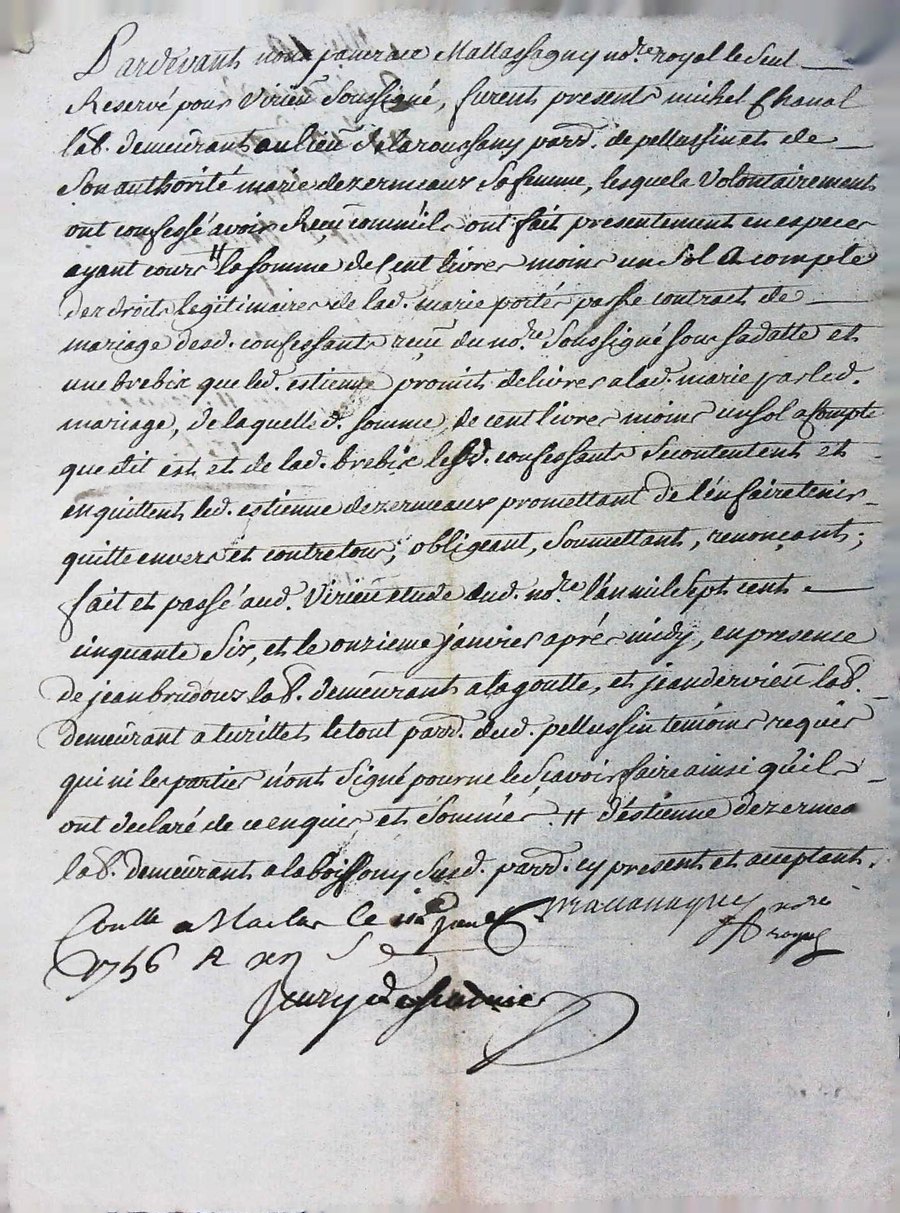 Pardevant nous pancrace Mallassagny no.re royal le seul
Reservé pour Virieu soussigné, furent presents michel Chanal
lab. demeurant au lieu de laroussany parr. de pellussin et de
son authorité marie dezermeaux sa femme, lesquels volontairement
ont confessé avoir Receu comme ils ont fait presentement en especes
ayant cours # la somme de Cent livres moins un sol a compte
des droits legitimaires de lad. marie portés par le contract de
mariage desd. confessants reçeu du no.re soussigné sous sa datte et
une brebis que led. estienne promit delivrer a lad. marie par led.
mariage, de laquelle d. somme de cent livres moins un sol a compte
que dit est et de lad. brebis lesd. confessants se contentent et
en quittent led. estienne dezermeaux promettant de l'en faire tenir
quitte envers et contre tous, obligeant, soumettant, renonçant;
fait et passé aud. Virieu etude dud. no.re l'an mil sept cent
cinquante six, et le onzieme janvier aprés midy, en presence
de jean brudous lab. demeurant a la goutte, et jean dervieu lab.
demeurant a turillet le tout parr. dud. pellussin temoins requis
qui ni les parties n'ont signé pour ne le sçavoir faire ainsi qu'ils
ont declaré de ce enquis et sommés. # d'estienne dezermea
lab. demeurant a laboissony susd. parr. cy present et acceptant.
Conllé a Maclas le janv
no.re royal
1756 R